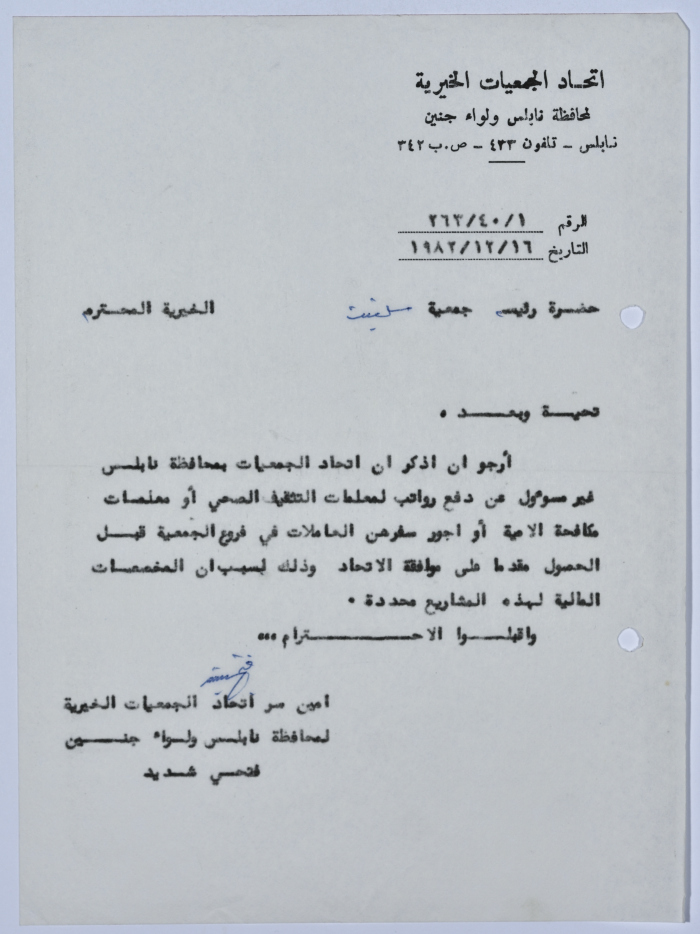 اتحاد الجمعيات الخيرية
لمحافظة نابلس ولواء جنين
نابلس – تلفون ٤٣٣ – ص.ب ٣٤٢
الرقم ٢٦٣/٤٠/١
التاريخ ١٩٨٢/١٢/١٦
حضرة رئيسه جمعية سلفيت الخيرية المحترم
تحية وبعد ،
أرجو ان اذكر ان اتحاد الجمعيات بمحافظة نابلس
غير مسوءول عن دفع رواتب لمعلمات التثقيف الصحي أو معلمات
مكافحة الامية أو اجور سفرهن العاملات في فروع الجمعية قبل
الحصول مقدما على موافقة الاتحاد وذلك لسبب ان المخصصات
المالية لهذه المشاريع محددة .
واقبلوا الاحترام ...
امين سر اتحاد الجمعيات الخيرية
لمحافظة نابلس ولواء جنين
فتحي شديد